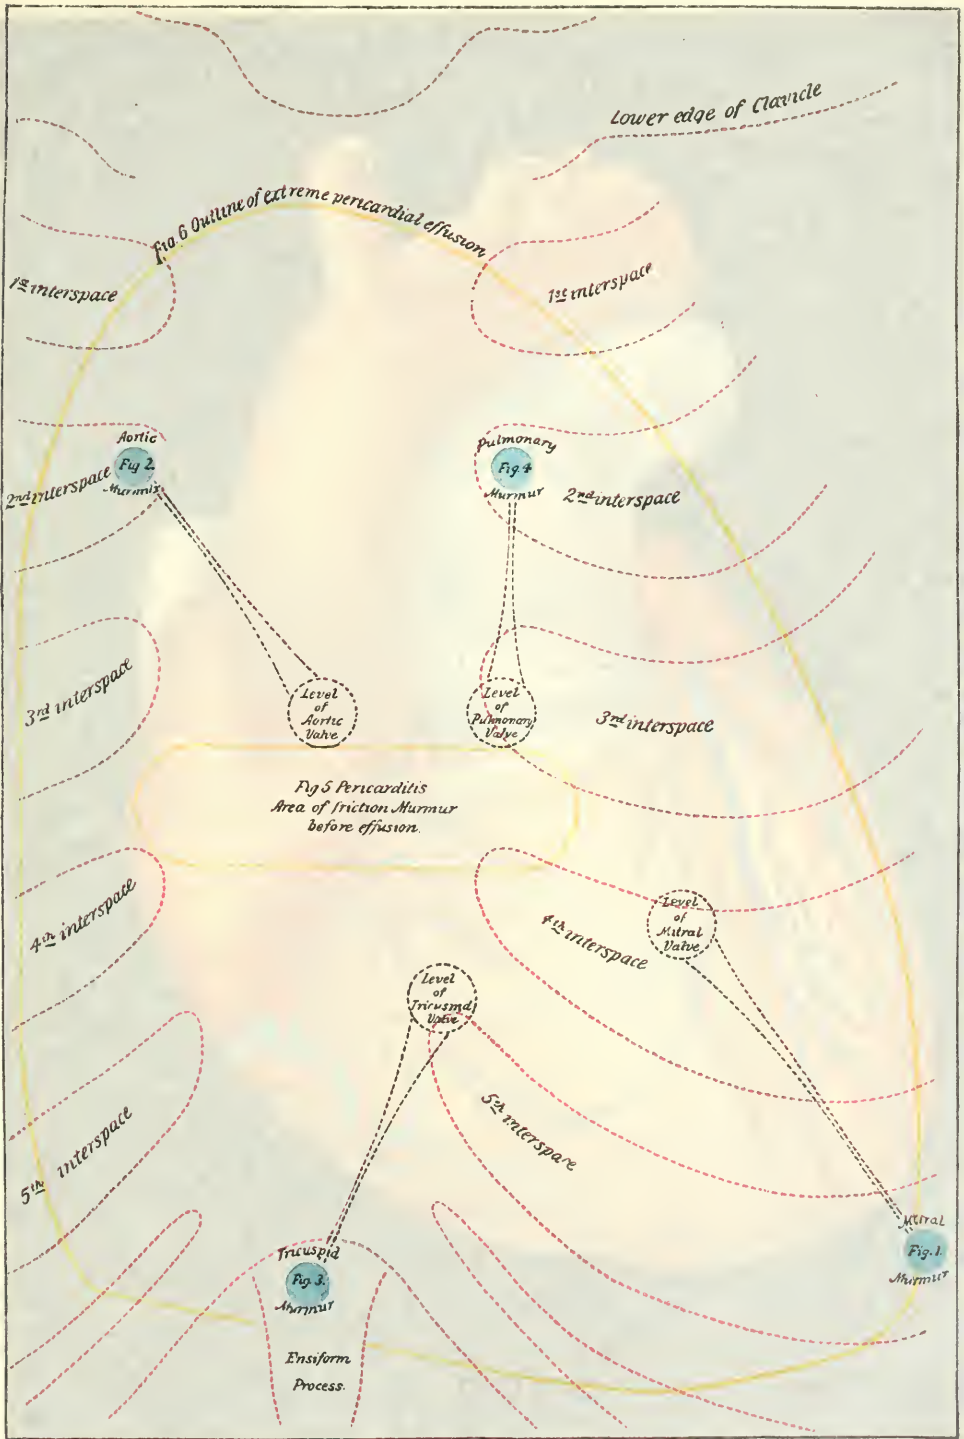 Lower edge of Clavicle
Fig. 6 Outline of extreme pericardial effusion
1st interspace
1st interspace
Aortic
Fig 2.
Murmur
2nd interspace
Pulmonary
Fig. 4
Murmur
2nd interspace
3rd interspace
Level
of
Aortic
Valve
Level
of
Pulmonary
Valve
3rd interspace
Fig 5 Pericarditis
Area of friction Murmur
before effusion.
4th interspace
4th interspace
Level
of
Mitral
Valve
Level
of
Tricuspid
Valve
5th interspace
5th interspace
Mitral
Fig. 1.
Murmur
Tricuspid
Fig. 3.
Murmur
Ensiform
Process.